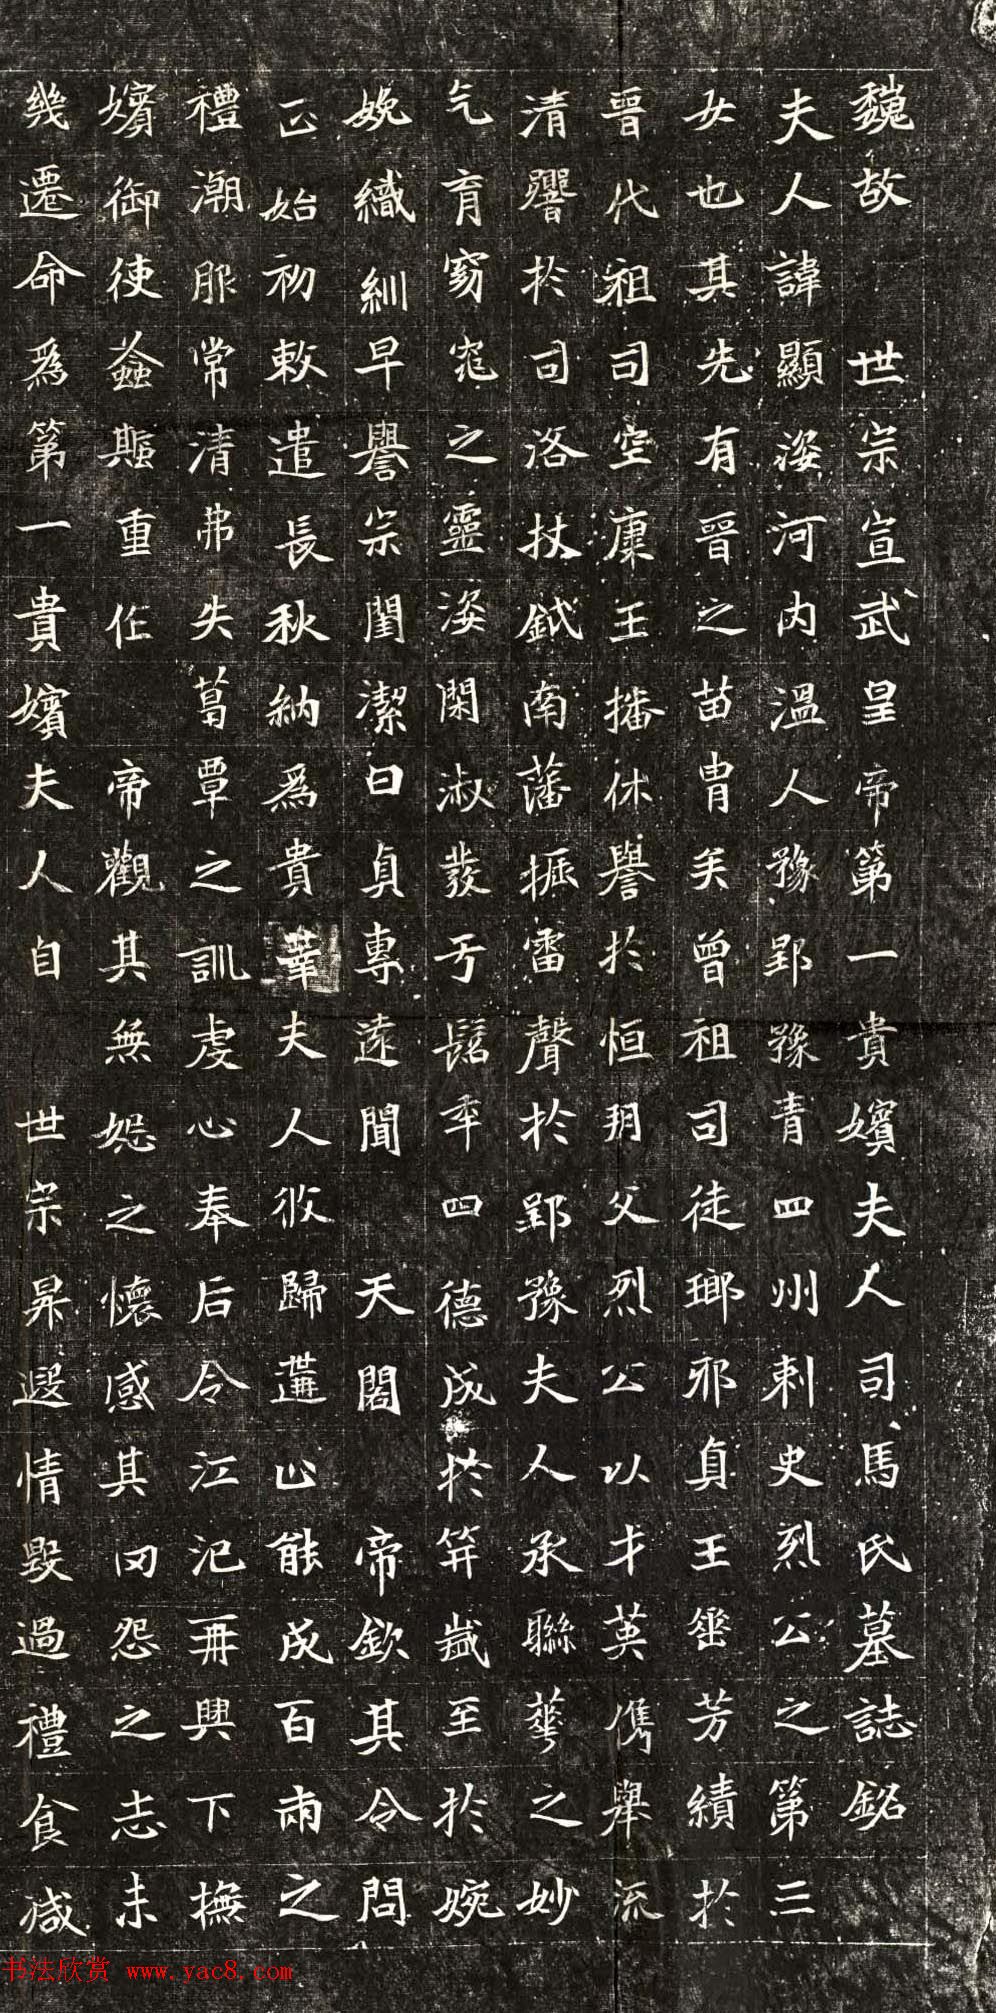 魏故　世宗宣武皇帝第一貴嬪夫人司馬氏墓誌銘
夫人諱顯姿河内溫人豫郢豫青四州刺史烈公之第三
女也其先有晉之苗胄矣曾祖司徒瑯邪貞王垂芳績於
晉代祖司空康王播休譽於恒朔父烈公以才英儁舉流
清響於司洛杖鉞南藩振雷聲於郢豫夫人承聯華之妙
气育窈窕之靈姿閑淑發于髫年四德成於笄歲至於婉
娩織紃早譽宗閨潔白貞專遠聞　天閣　帝欽其令問
正始初敕遣長秋納為貴華夫人攸歸遘止能成百兩之
禮潮服常清弗失葛覃之訓虔心奉后令江汜再興下撫
嬪御使螽斯重作　帝觀其無妬之懷感其罔怨之志未
幾遷命為第一貴嬪夫人自　世宗昇遐情毀過禮食減
书法欣赏 www.yac8.com